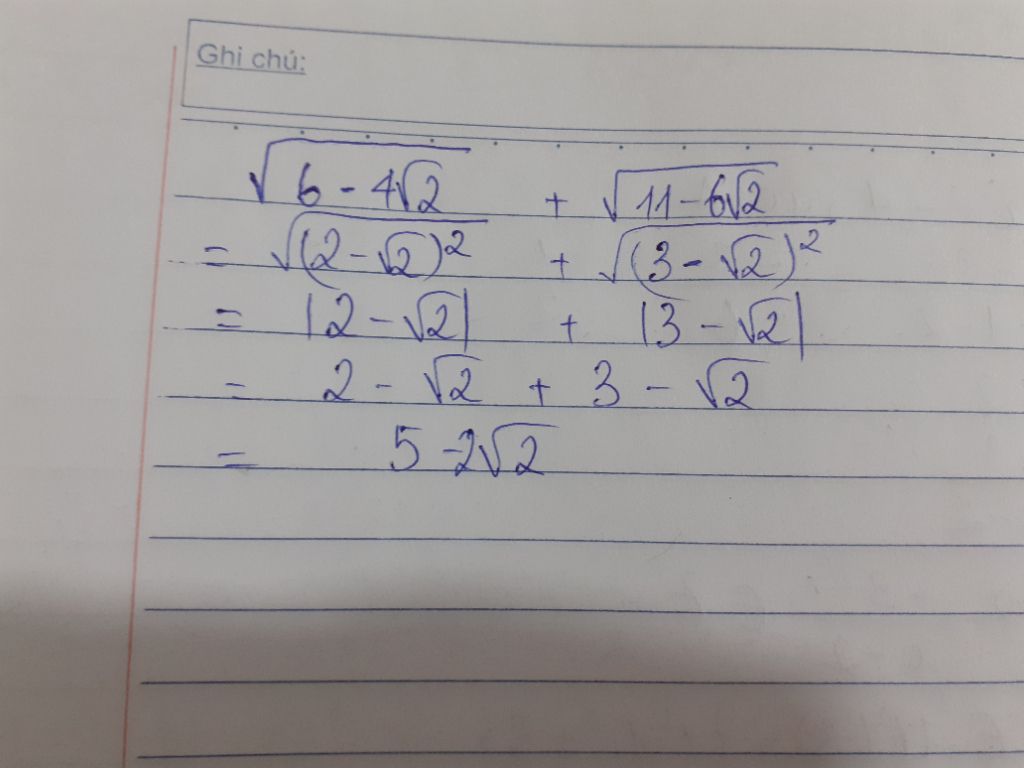 Ghi chú:
√(6 - 4√2) + √(11 - 6√2)
= √((2 - √2)²) + √((3 - √2)²)
= |2 - √2| + |3 - √2|
= 2 - √2 + 3 - √2
= 5 - 2√2